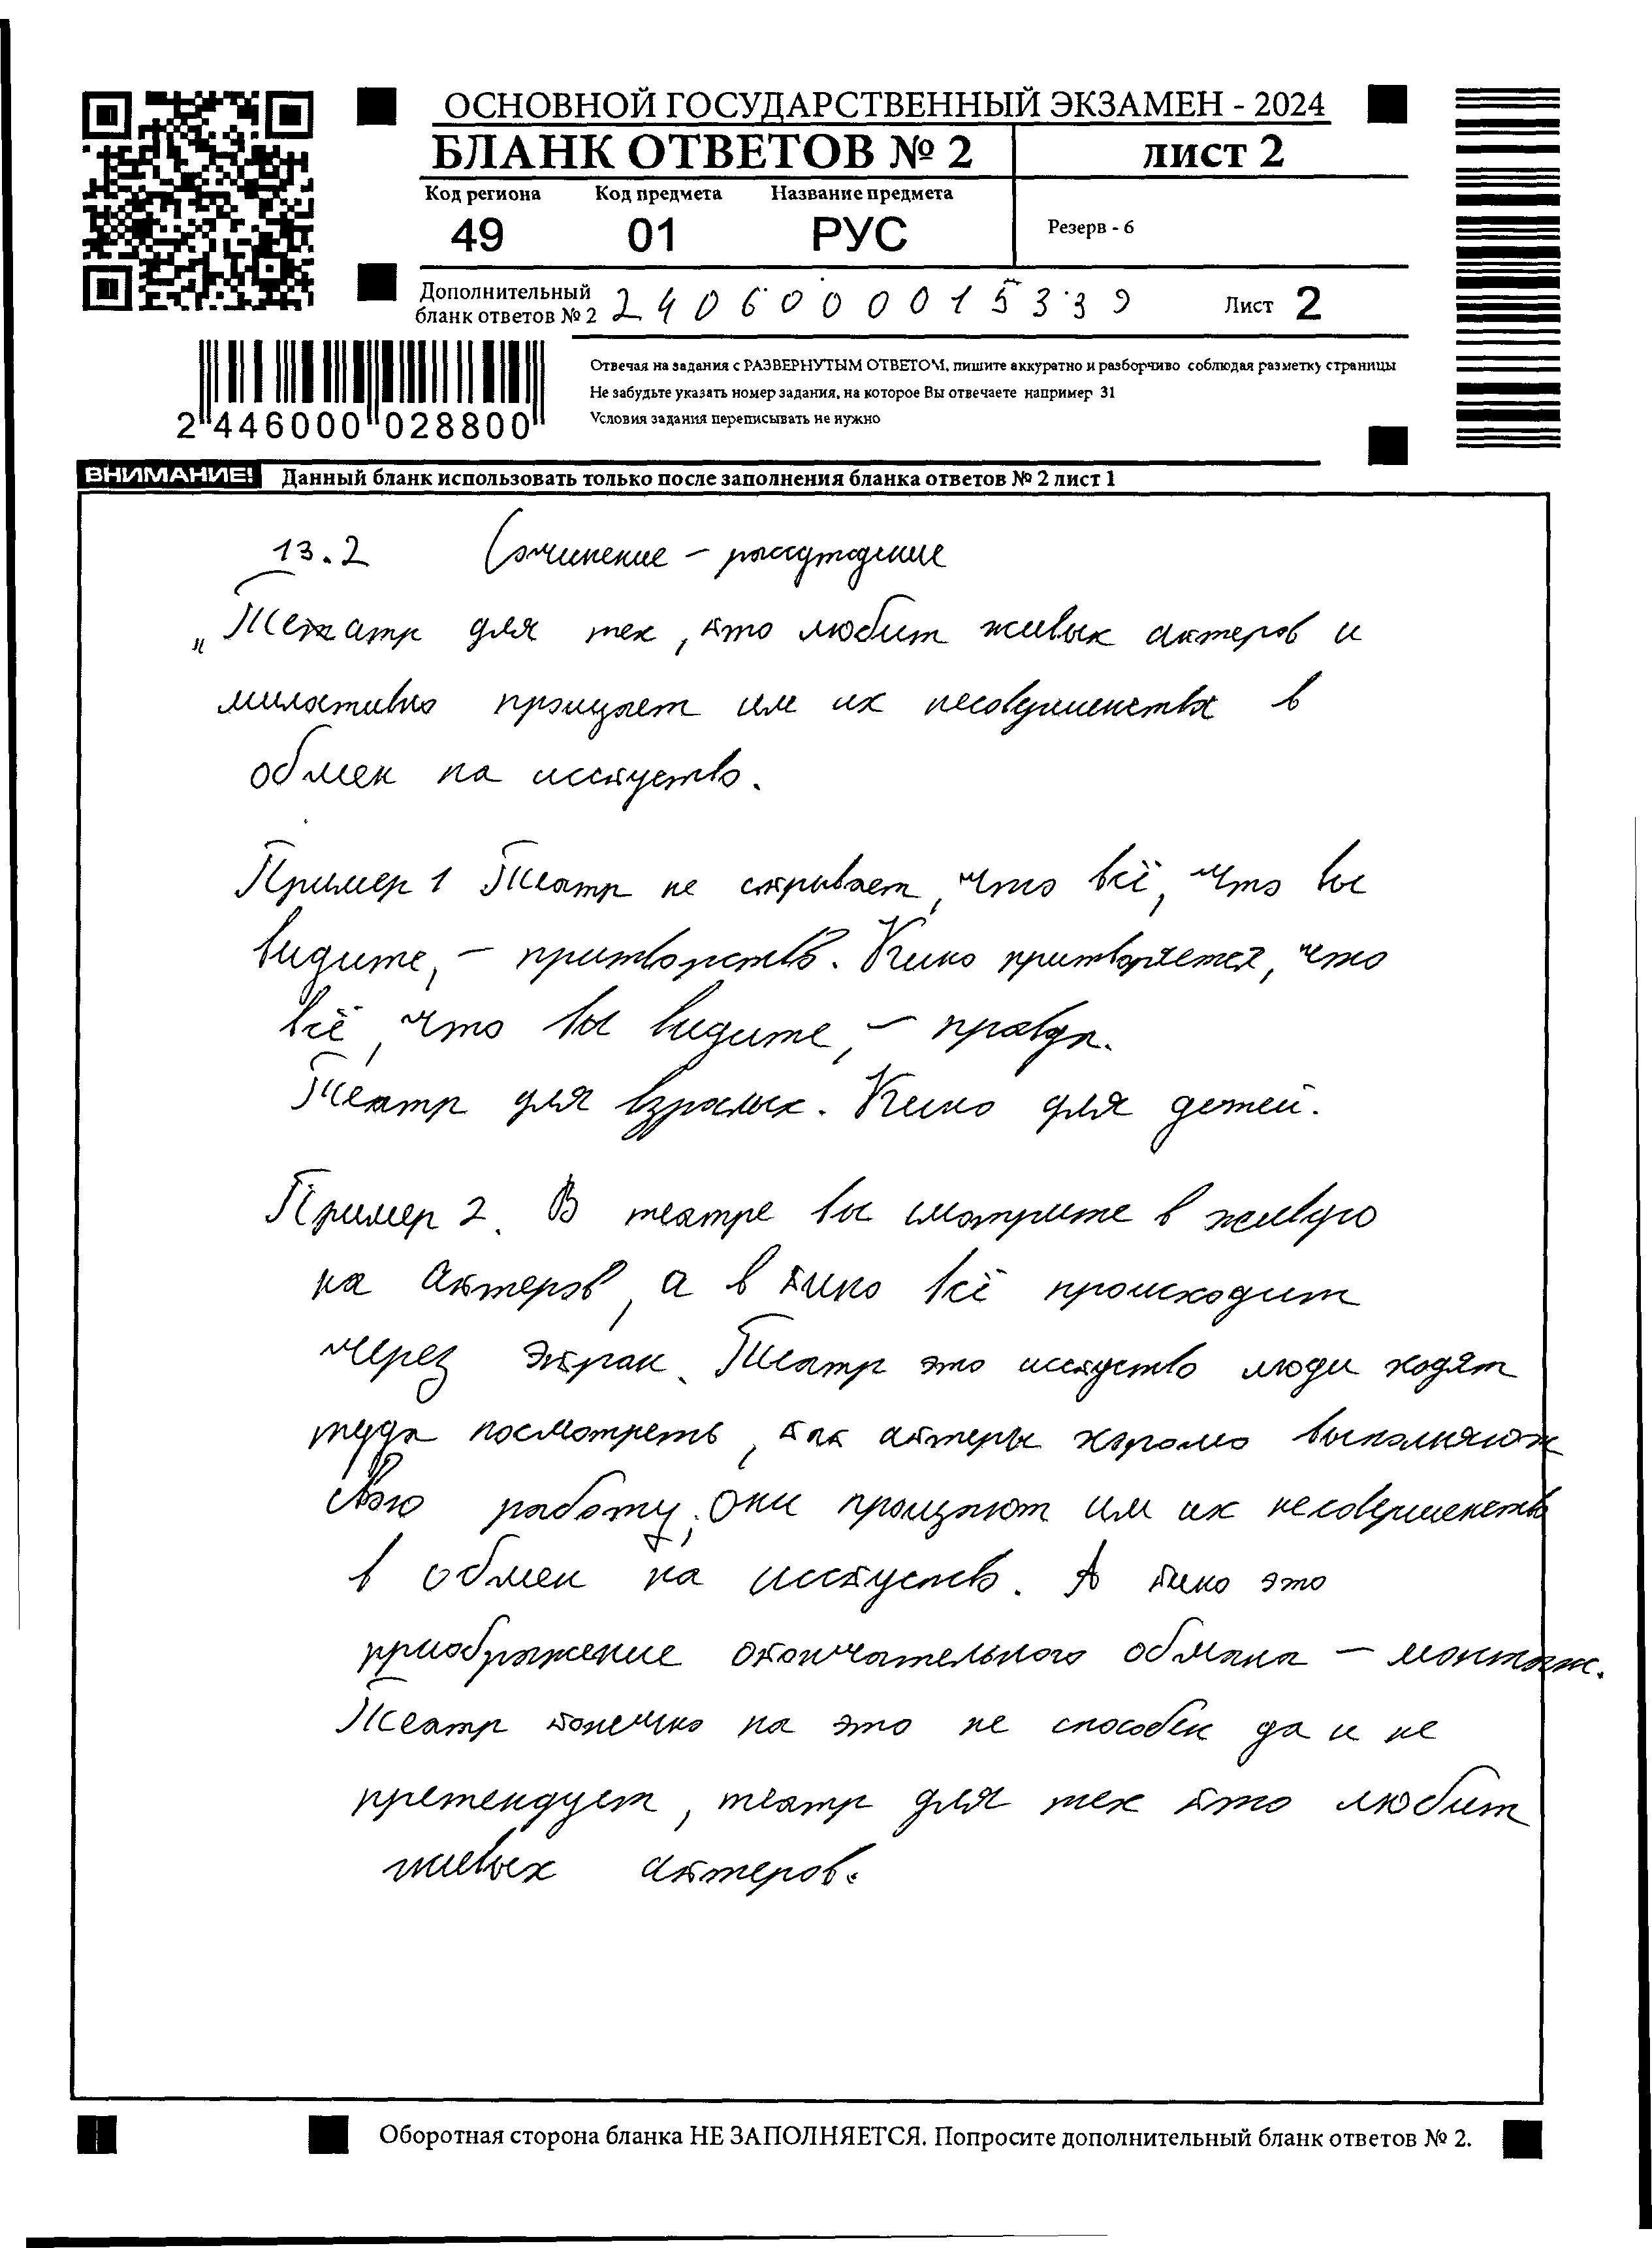 ОСНОВНОЙ ГОСУДАРСТВЕННЫЙ ЭКЗАМЕН - 2024
БЛАНК ОТВЕТОВ № 2
ЛИСТ 2
Код региона Код предмета Название предмета
49 01 РУС
Резерв - 6
Дополнительный
бланк ответов № 2
2406000015339
Лист 2
Отвечая на задания с РАЗВЕРНУТЫМ ОТВЕТОМ, пишите аккуратно и разборчиво соблюдая разметку страницы
Не забудьте указать номер задания, на которое Вы отвечаете например 31
Условия задания переписывать не нужно
2 446000 028800
ВНИМАНИЕ! Данный бланк использовать только после заполнения бланка ответов № 2 лист 1
13.2 Сочинение – рассуждение
„Театр для тех, кто любит живых актеров и
милостиво прощает им их несовершенства в
обмен на исскуство.
Пример 1 Театр не скрывает, что всё, что вы
видите, – притворство. Кино притворяется, что
всё, что вы видите, – правда.
Театр для взралых. Кино для детей.
Пример 2. В театре вы смотрите в живую
на актеров, а в кино всё происходит
через экран. Театр это исскуство люди ходят
туда посмотреть, как актеры хорошо выполняют
свою работу. Они прощают им их несовершенства
в обмен на исскуство. А кино это
приображение окончательного обмана – монтаж.
Театр конечно на это не способен да и не
претендует, театр для тех кто любит
живых актеров.
Оборотная сторона бланка НЕ ЗАПОЛНЯЕТСЯ. Попросите дополнительный бланк ответов № 2.